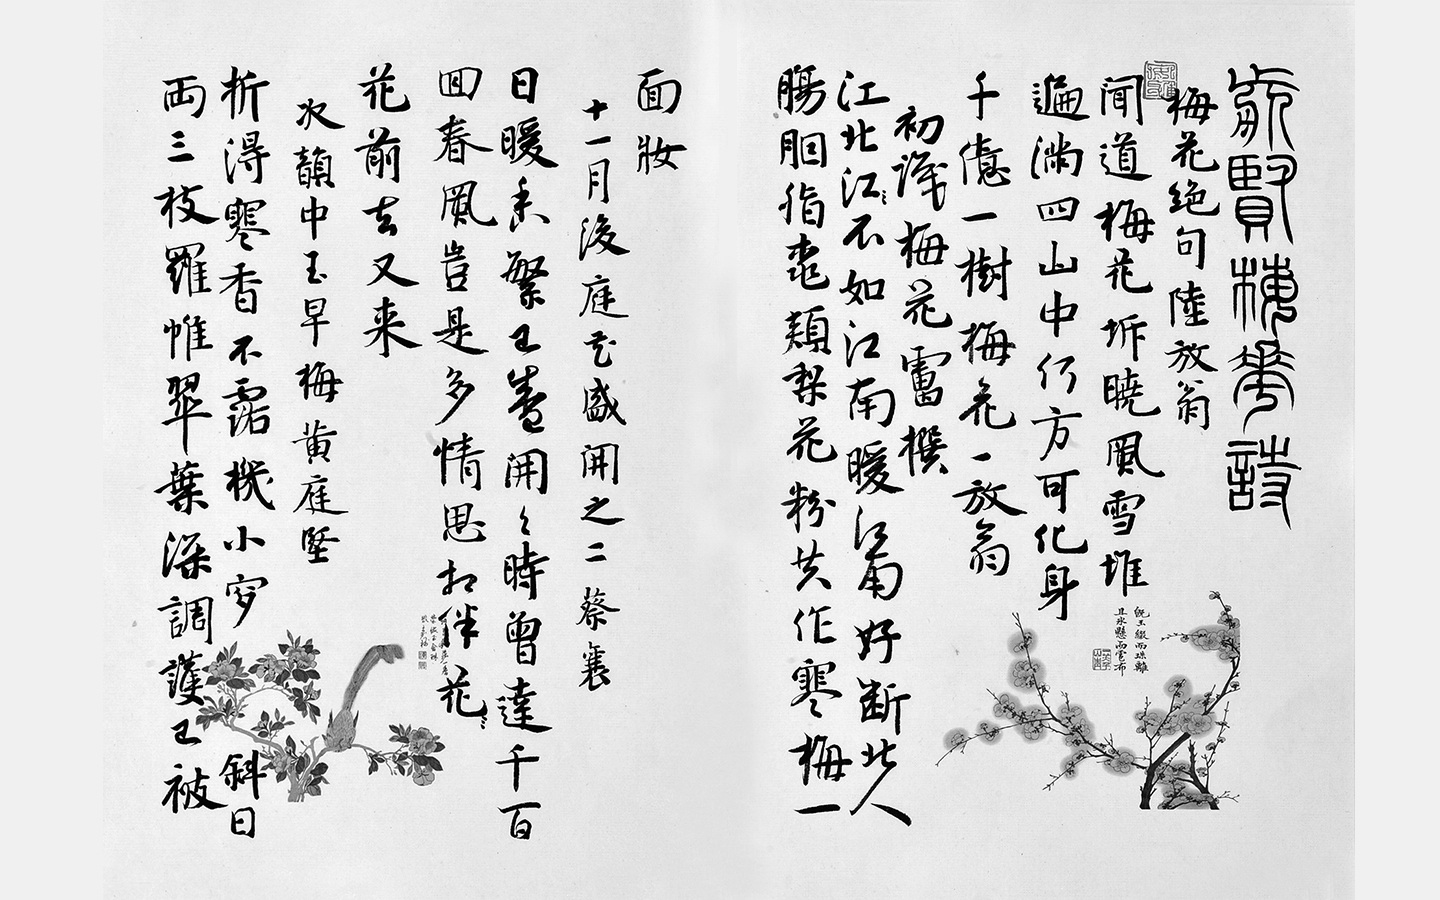 賢梅華詩
梅花絕句陸放翁
聞道梅花坼曉風雪堆
遍滿四山中何方可化身
千億一樹梅花一放翁
初識梅花雷撰
江北江ミ不如江南暖江南好斷北人
腸胭脂桃頰梨花粉共作寒梅一
面妝
十一月後庭花盛開之二蔡襄
日暖香繁已盛開々時曾達千百
回春風豈是多情思相伴花ミ
花前去又来
次韻中玉早梅黄庭堅
折得寒香不露機小窗斜日
両三枝羅帷翠葉深調護已被
既玉綴而珠離
且冰懸而雹布